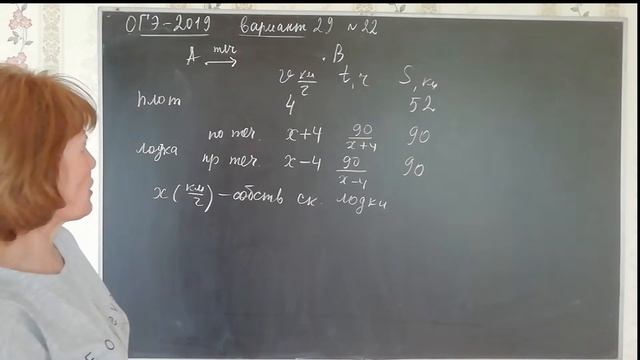 ОГЭ-2019 вариант 29 №22
А теч → . В
v км/г t, ч S, км
плот 4 52
по теч. x+4 90/x+4 90
лодка пр теч. x-4 90/x-4 90
x (км/г) - собств ск. лодки